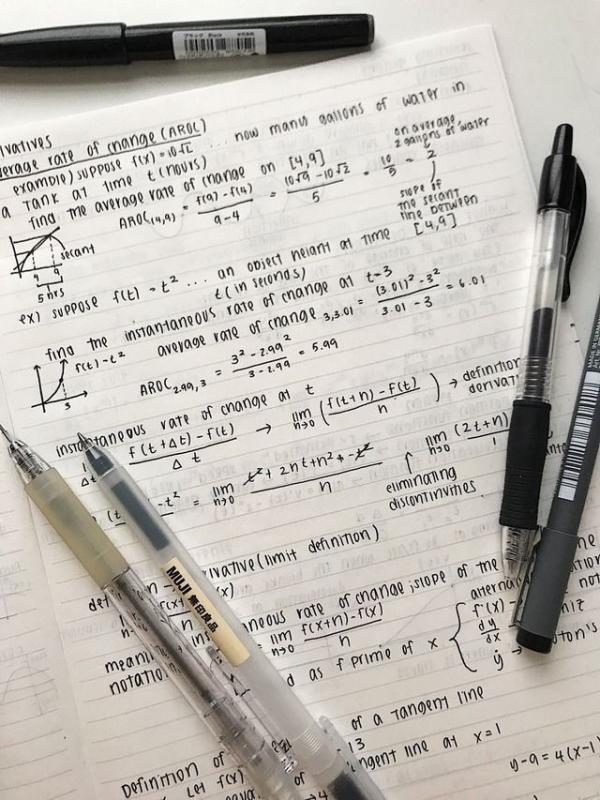 ブラック Black
ivatives
verage rate of change (AROC)
example) suppose f(x) = 10√x ... how many gallons of water in
a tank at time t (hours)
find the average rate of change on [4,9]
AROC(4,9) = f(9) - f(4) / 9-4 = 10√9 - 10√2 / 5 = 10/5 = 2
on average,
2 gallons of water
slope of
the secant
line between
[4,9]
secant
4 9
5 hrs
ex) suppose f(t) = t² ... an object height at time
t (in seconds)
find the instantaneous rate of change at t=3
f(t) = t²
average rate of change 3,3.01 = (3.01)² - 3² / 3.01 - 3 = 6.01
AROC 2.99,3 = 3² - 2.99² / 3 - 2.99 = 5.99
3
instantaneous rate of change at t
f(t+Δt) - f(t) / Δt → lim h→0 (f(t+h) - f(t) / h) → definition
deriva
- t² = lim h→0 t² + 2ht + h² + - t² / h
lim h→0 (2t+h) / 1
eliminating
discontinuities
ivative (limit definition)
neous rate of change; slope of the
lim h→0 f(x+h) - f(x) / h
meani
notatio
d as f prime of x
f'(x)
dy/dx
ẏ →
ton's
MUJI 無印良品
of a tangent line
Definition of
Let f(x)
13
ngent line at x=1
y-9 = 4(x-1)
MADE IN GERMANY